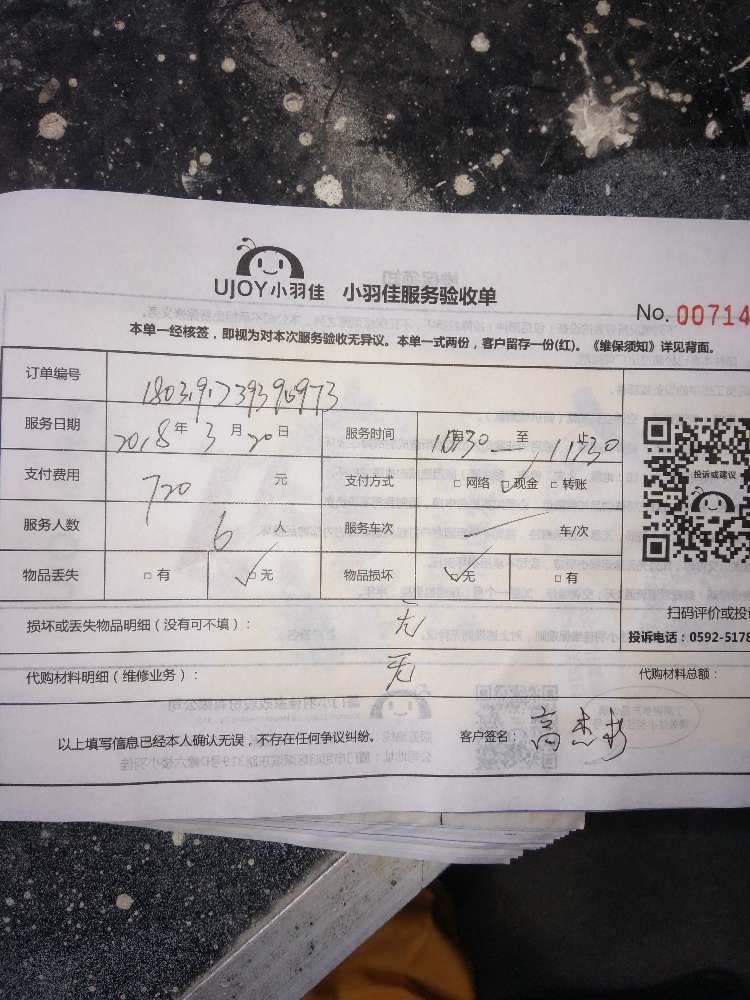 UJOY小羽佳 小羽佳服务验收单
No. 00714
本单一经核签，即视为对本次服务验收无异议。本单一式两份，客户留存一份(红)。《维保须知》详见背面。
订单编号
服务日期 2018年3月20日 服务时间 10:30 至 11:30 止
支付费用 720 元 支付方式 □ 网络 □ 现金 □ 转账
投诉或建议
服务人数 6 人 服务车次 车/次
物品丢失 □ 有 ✓□ 无 物品损坏 ✓□ 无 □ 有
损坏或丢失物品明细（没有可不填）： 无
扫码评价或投
投诉电话：0592-5178
代购材料明细（维修业务）： 无 代购材料总额：
以上填写信息已经本人确认无误，不存在任何争议纠纷。 客户签名： 高杰